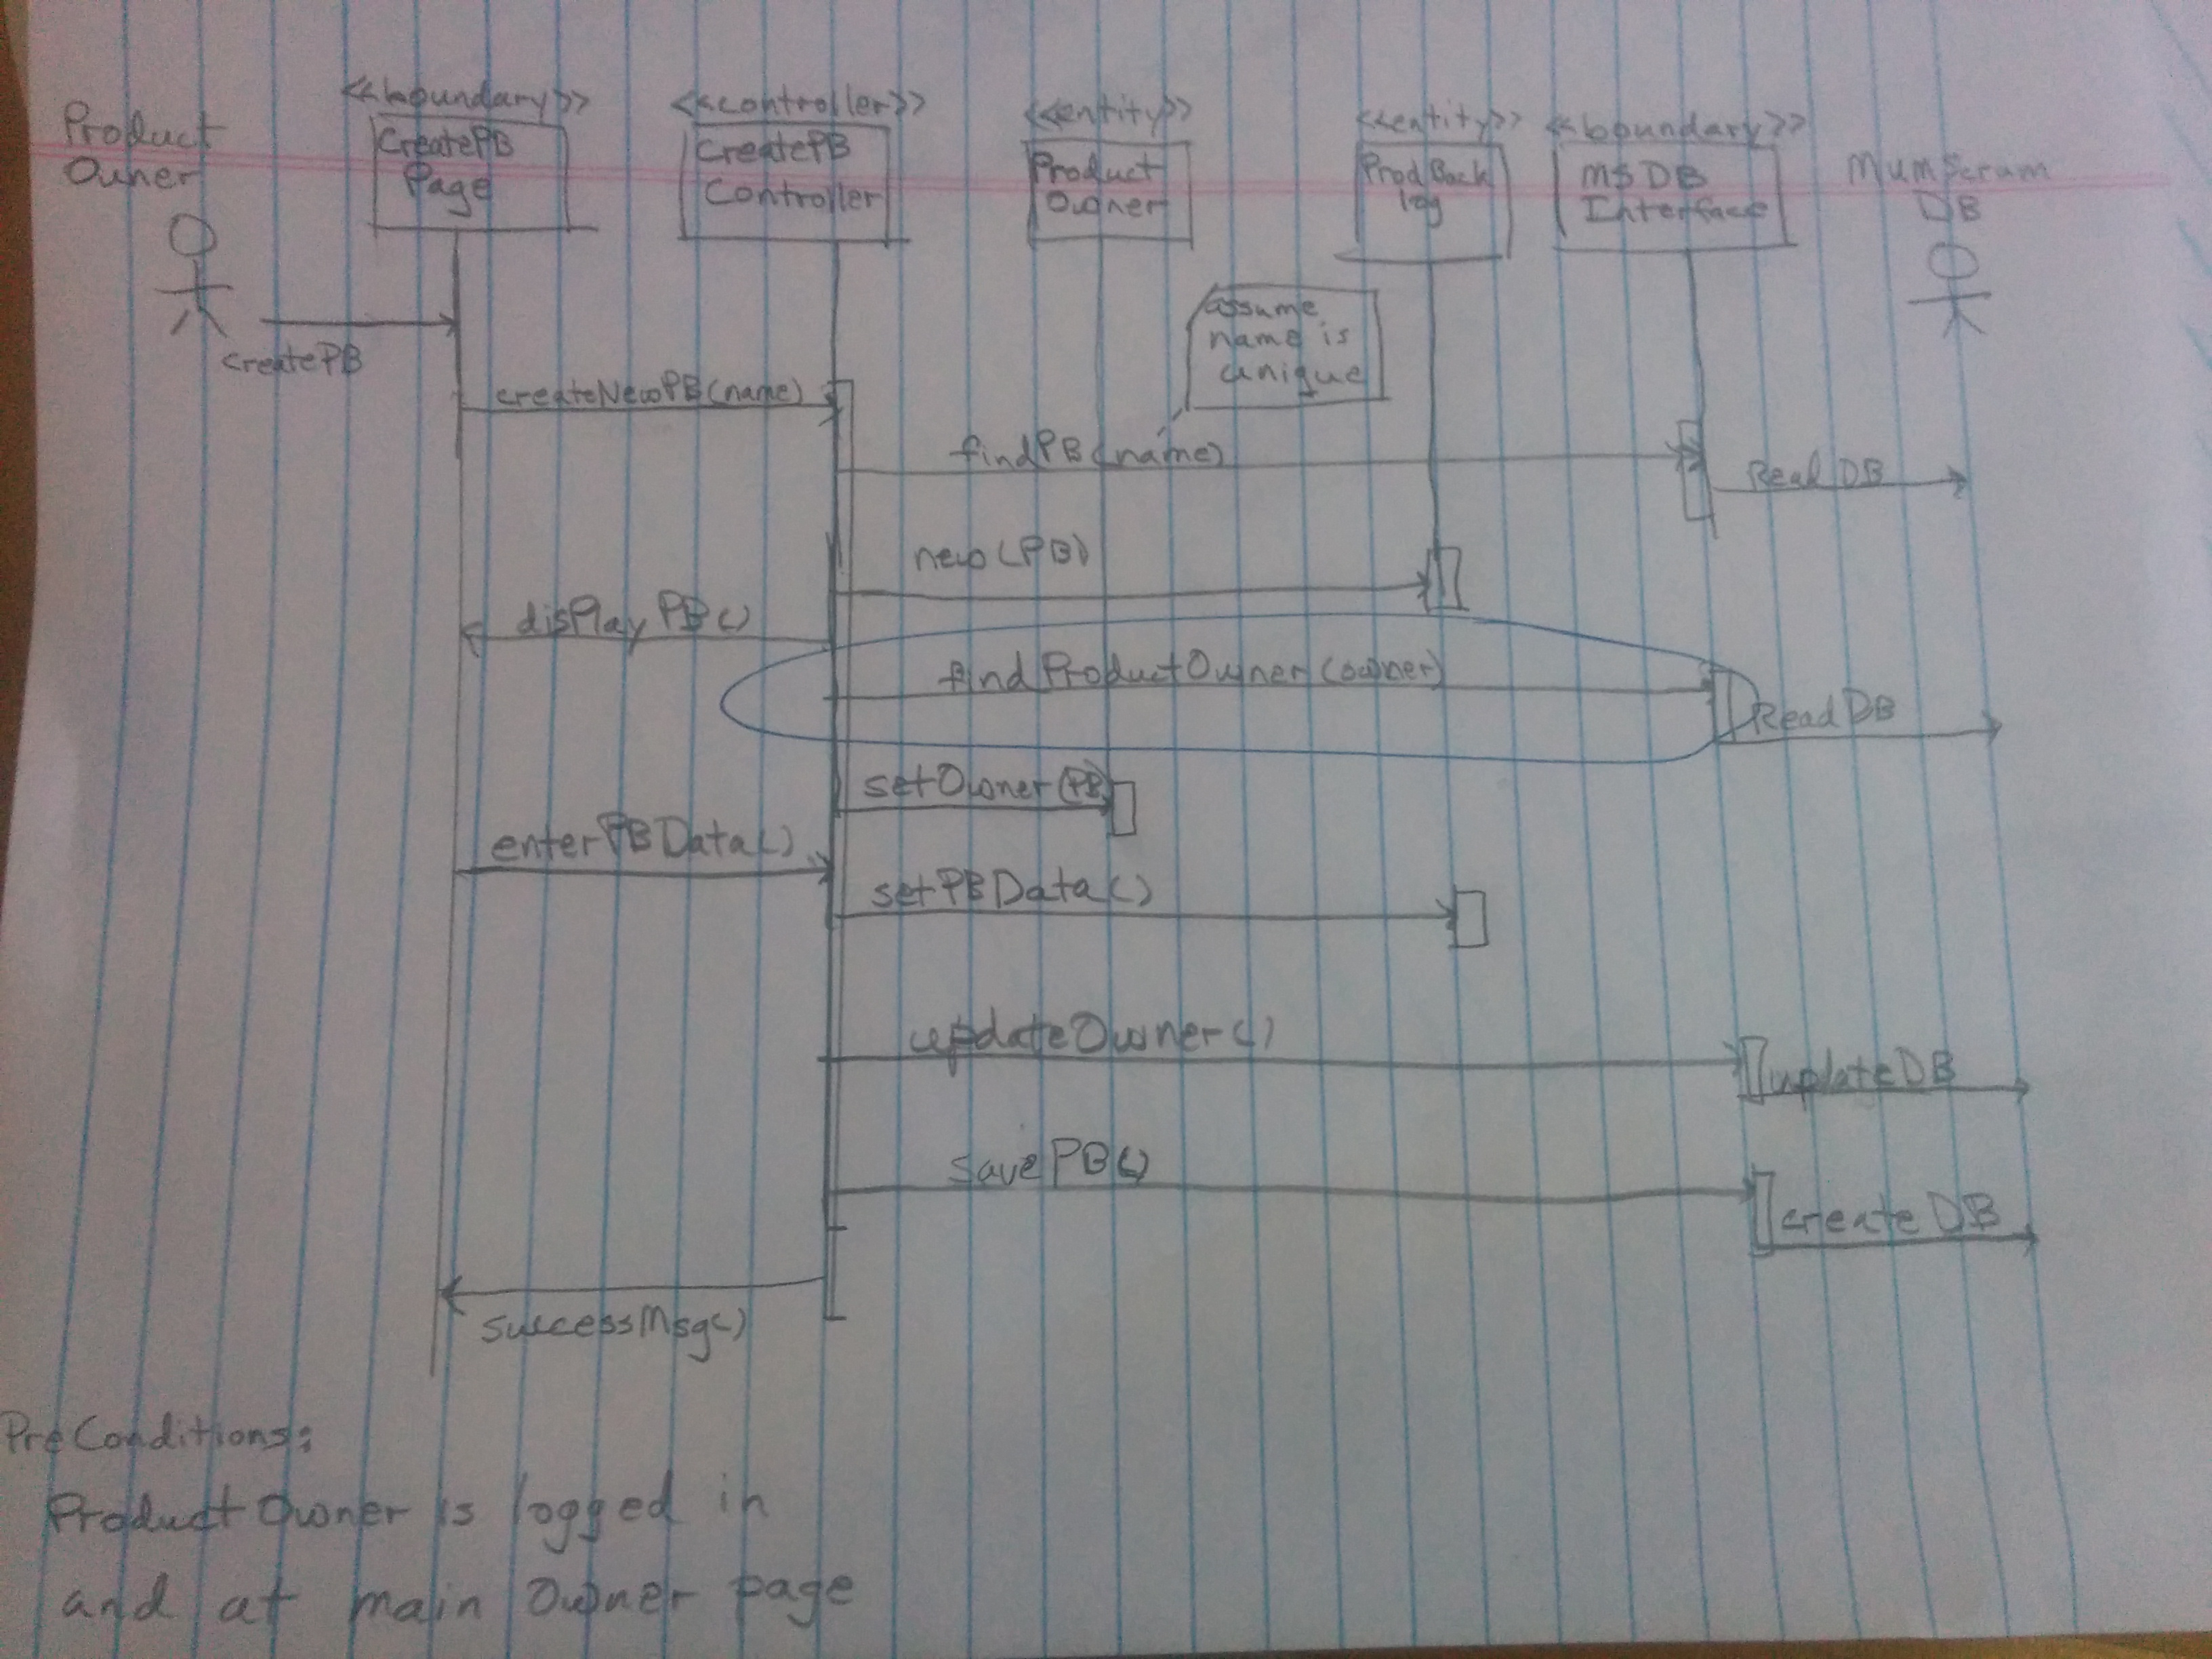 Product
Owner
<<boundary>>
CreatePB
Page
<<controller>>
CreatePB
Controller
<<entity>>
Product
Owner
<<entity>>
ProdBack
log
<<boundary>>
MSDB
Interface
MumScram
DB
createPB
assume
name is
unique
createNewPB(name)
findPB(name)
Read DB
new(PB)
disPlay PB()
findProductOwner(owner)
ReadDB
setOwner(PB)
enterPBData()
setPBData()
updateOwner()
updateDB
savePB()
createDB
successMsg()
PreConditions:
ProductOwner is logged in
and at main Owner page